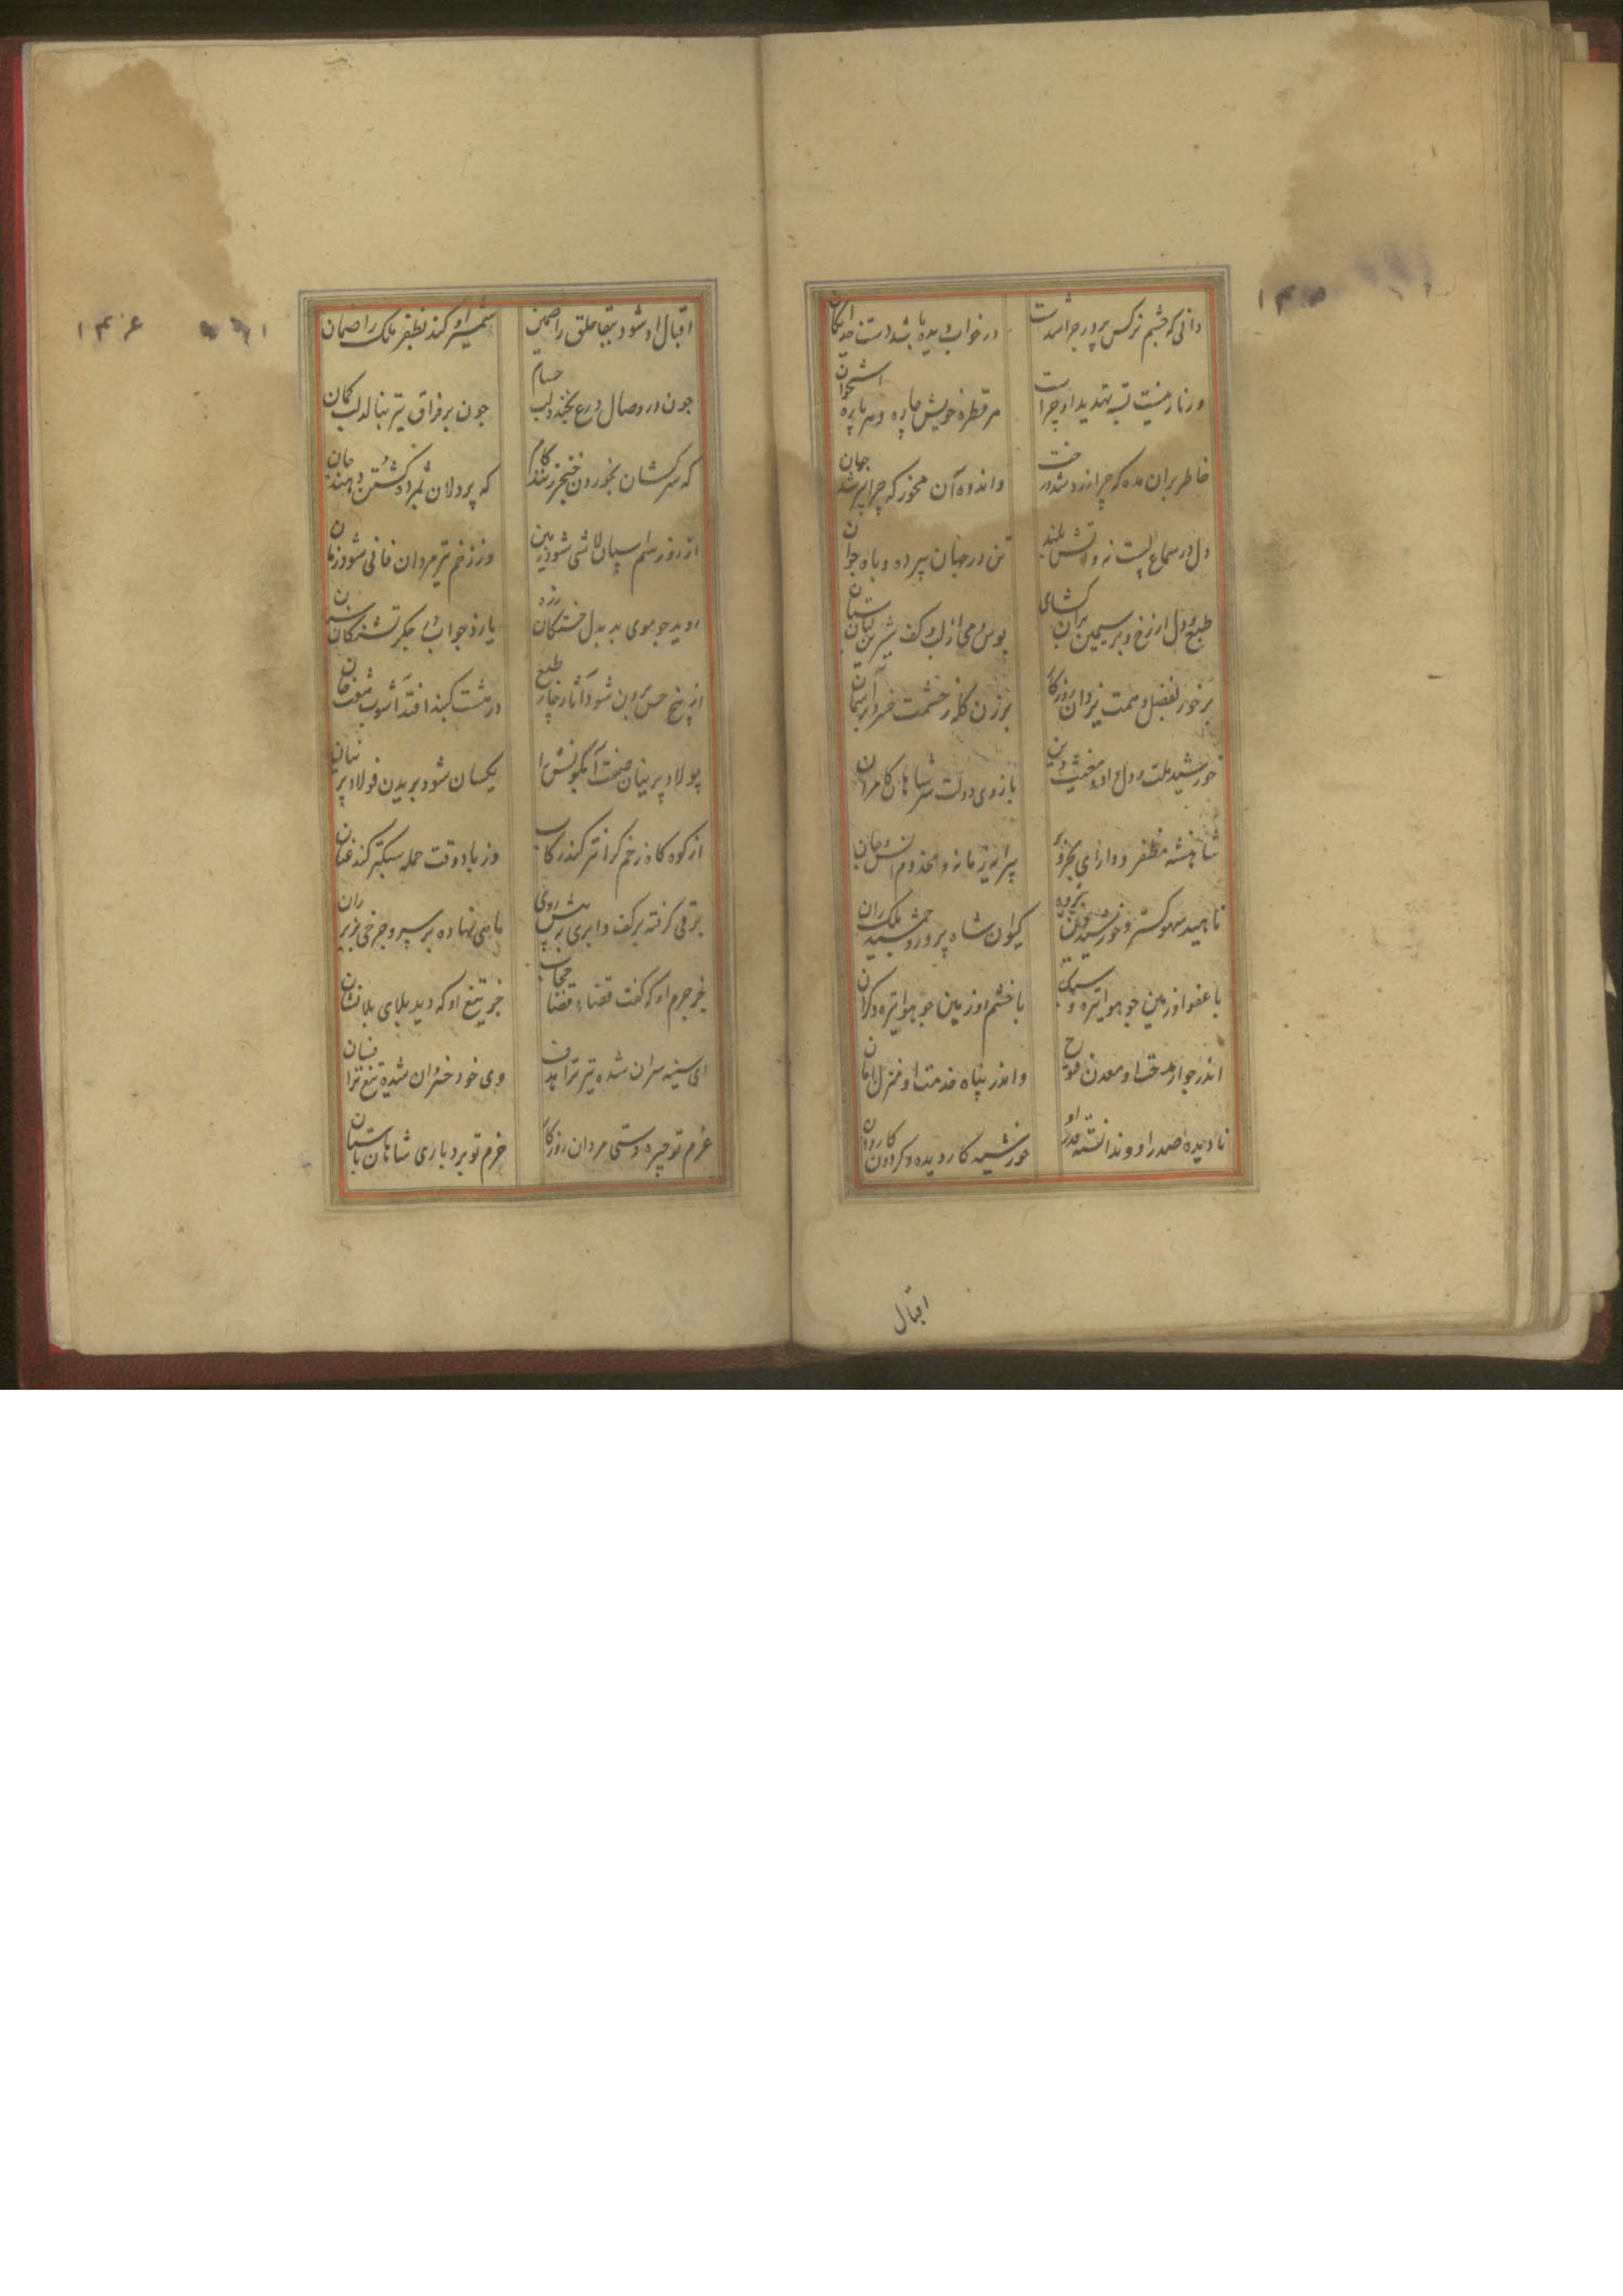 دانی که چشم نرکس بر زر جرا شدست
در خواب دیده باشد دست خدایکان
ور نار نیست تشنه تهدید او چراست
هر قطره خونش پاره و هر پاره استخوان
خاطر بران مده که چرا زرد شد درخت
و اندوه آن مخور که چرا پیر شد جهان
دل در سماع بست نه و آتش بلند
تن در جهان پیر ده و باده جوان
طبع و دل از رخ و بر سیمین بران کشای
بوس و می از لب و کف شیرین لبان ستان
بر خور بفضل و همت یزدان ز روزکار
برزن کله ز حشمت خسرو بر آسمان
خورشید ملت و دل و داد مغیث دین
بازوی دولت و سر شاهان کامران
شاهنشه مظفر و دارای بحر و بر
پیرایه زمانه و مخدوم انس و جان
ناهید سهو کستر و خورشید دین پژوه
کیوان شاه پرور و جمشید ملک ران
با عفو او زمین جو هوا تیره و سبک
با خشم او زمین جو هوا تیره و کران
اندر جوار همت او معدن فتوح
و اندر پناه خدمت او منزل امان
نادیده صدر او و ندانسته قدر او
خورشید کار دیده و کردون کاردان
اقبال
اقبال او شود ببقا خلق را ضمین
شمشیر او کند بظفر ملک را ضمان
جون در وصال درع بخندد لب حسام
جون بر فراق تیر بنالد لب کمان
که سرکشان بخوردن خنجر زنند کام
که پردلان بمژده کشتن دهند جان
از زور سم اسپان لاشی شود زمین
وز زخم تیر مردان فانی شود زمان
روید جو موی بد بدل خستکان زرد
بارد جو آب بر جکر تشنکان سنان
از پنج حس برون شود آثار چار طبع
در هشت کنبد افتد آشوب هفت خان
پولاد پرنیان صفت آبکونش را
یکسان شود بریدن فولاد و پرنیان
از کوه کاه زخم کرانتر کند رکاب
وز باد وقت حمله سبکتر کند عنان
برقی کرفته بر کف و ابری بپیش روی
ماهی نهاده بر سر و چرخی بزیر ران
جز جرم او که کفت قضاء قضا حجاب
جز تیغ او که دید بلای بلا نشان
ای سینه سران شده تیر ترا هدف
وی خود خسروان شده تیغ ترا فسان
عزم تو چیره دستی مردان روزکار
حزم تو بردباری شاهان باستان